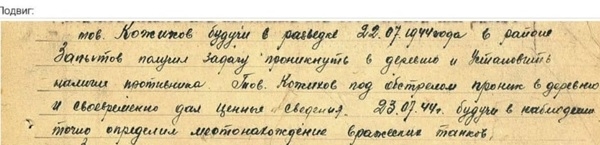 Подвиг:
тов. Кожиков будучи в разведке 22.07.1944 года в районе
Запытов получил задачу проникнуть в деревню и установить
наличия противника. Тов. Кожиков под обстрелом проник в деревню
и своевременно дал ценные сведения. 23.07.44г. будучи в наблюдении
точно определил местонахождение вражеских танков.